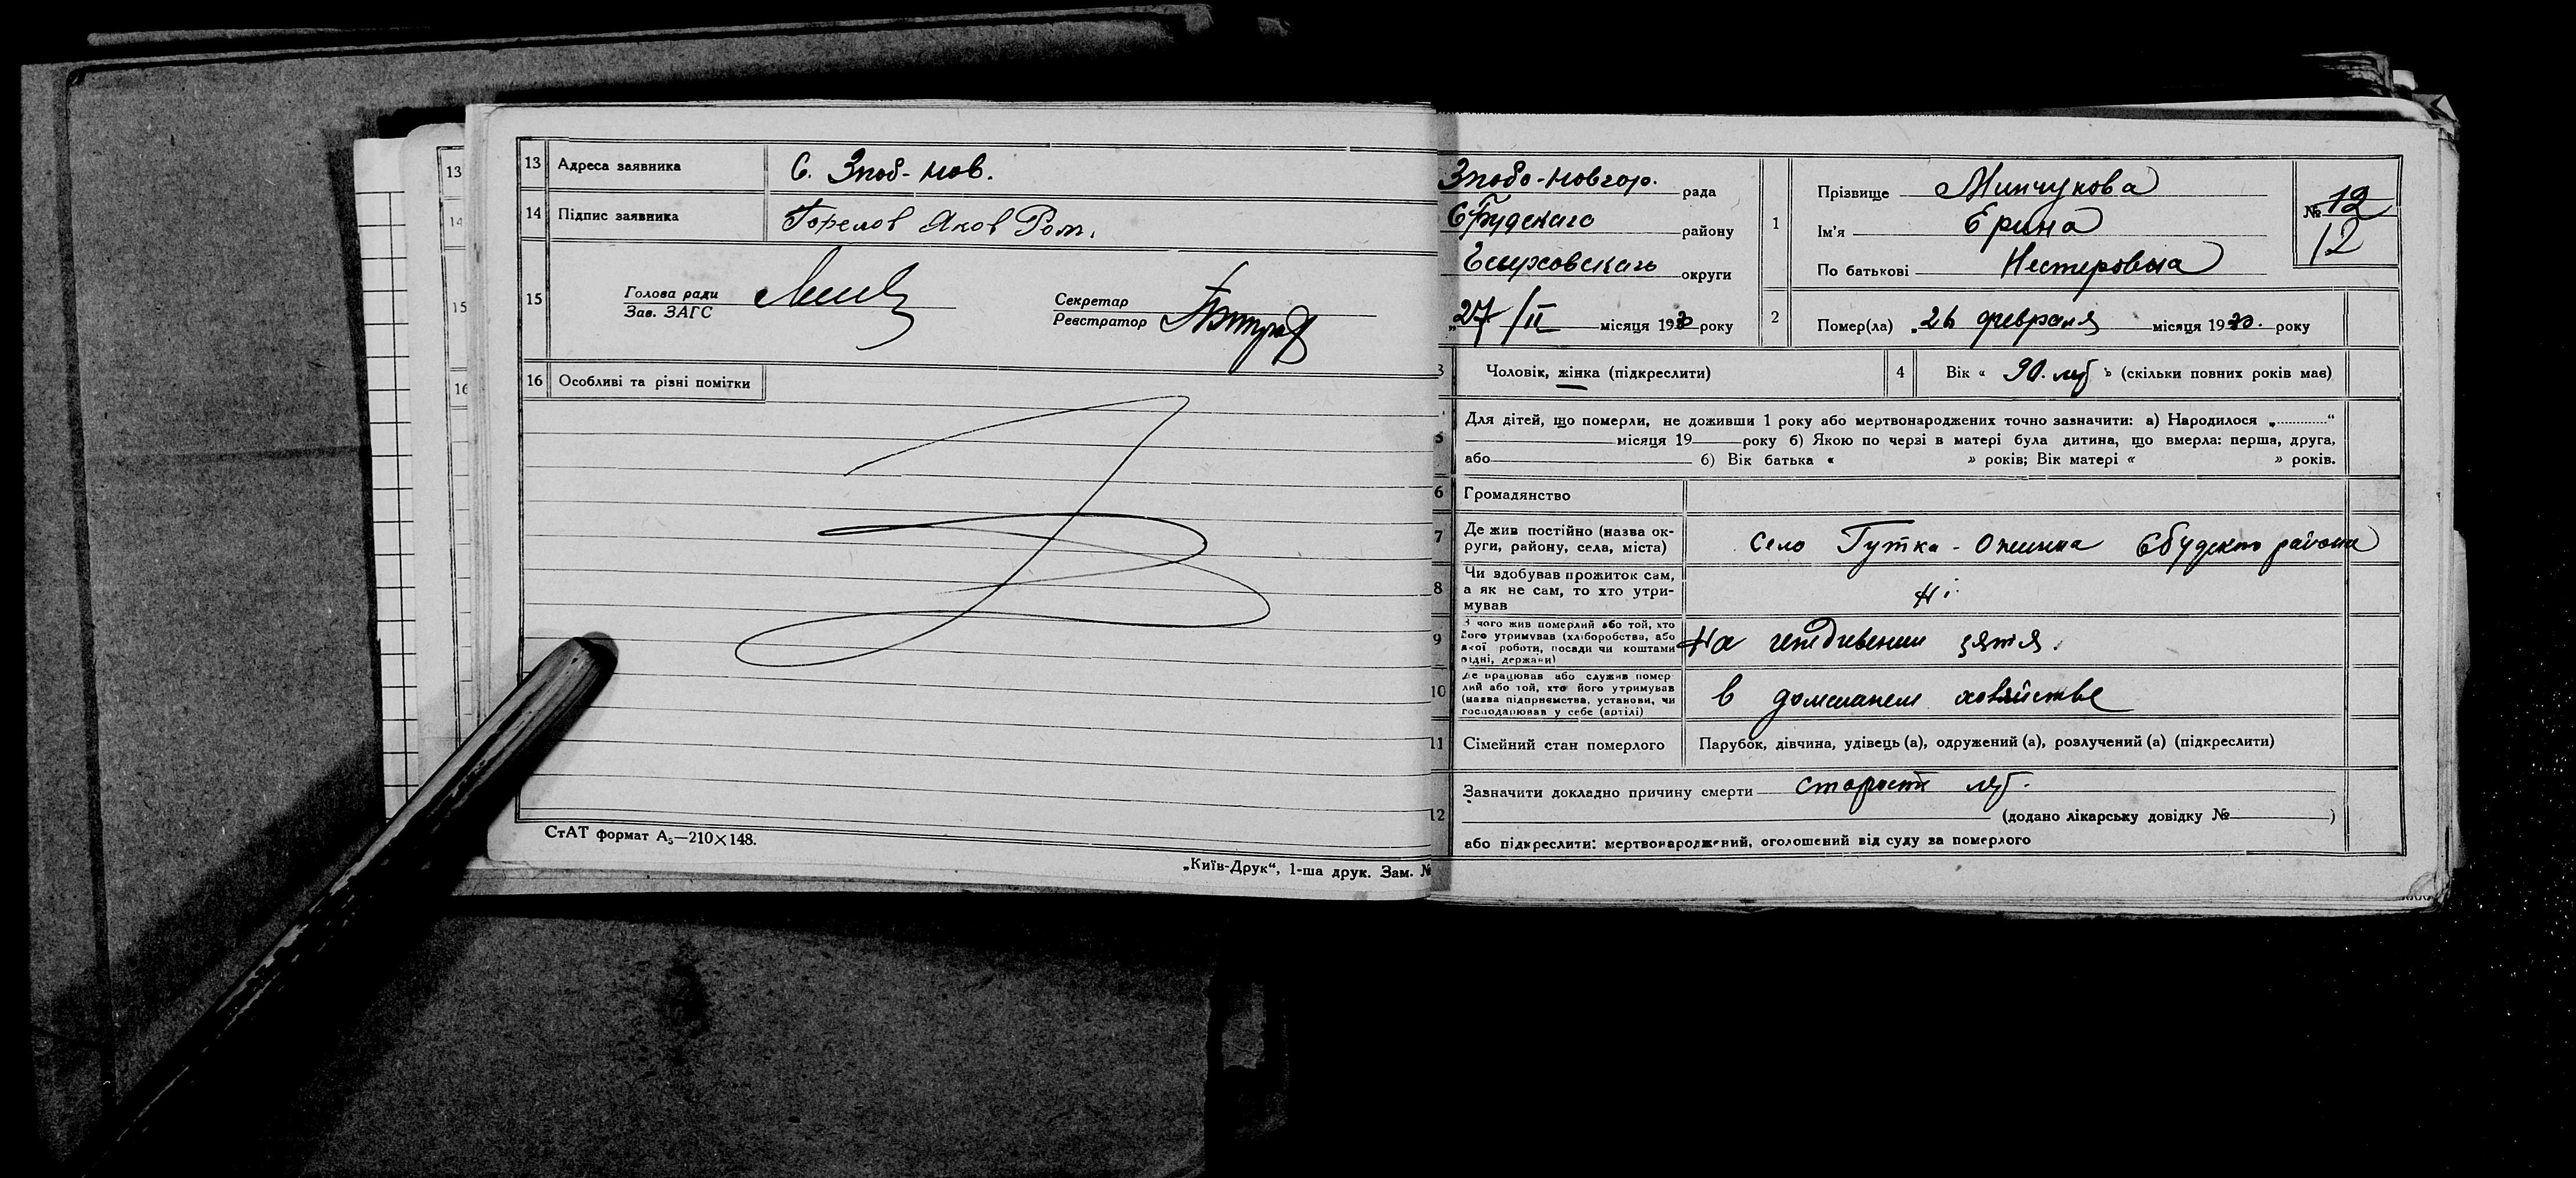 13
14
15
16
13 Адреса заявника С. Зноб-Нов.
14 Підпис заявника Горелов Яков Ром.
15 Голова ради
Зав. ЗАГС
Секретар
Реєстратор
16 Особливі та різні помітки
СтАТ формат А₅—210×148.
„Київ-Друк“, 1-ша друк. Зам. №
Знобо-Новгор. рада
СБудскаго району
округи
„27/II місяця 1930 року
1 Прізвище Минчукова
Ім'я Ерина
По батькові Нестеровна
№ 12
12
2 Помер(ла) „26 февраля місяця 1930. року
3 Чоловік, жінка (підкреслити)
4 Вік « 90. лет » (скільки повних років має)
5 Для дітей, що померли, не доживши 1 року або мертвонароджених точно зазначити: а) Народилося „............“
місяця 19 року б) Якою по черзі в матері була дитина, що вмерла: перша, друга,
або б) Вік батька « » років; Вік матері « » років.
6 Громадянство
7 Де жив постійно (назва ок-
руги, району, села, міста) Село Гутка - Ожинка СБудского района
8 Чи здобував прожиток сам,
а як не сам, то хто утри-
мував Ні
9 З чого жив померлий або той, хто
його утримував (хліборобства, або
якої роботи, посади чи коштами
рідні, держави) На иждивении зятя.
10 Де працював або служив помер-
лий або той, хто його утримував
(назва підприємства, установи, чи
господарював у себе (артілі) в домашнем хозяйстве
11 Сімейний стан померлого Парубок, дівчина, удівець (а), одружений (а), розлучений (а) (підкреслити)
12 Зазначити докладно причину смерти старости лет.
(додано лікарську довідку № )
або підкреслити: мертвонароджений, оголошений від суду за померлого